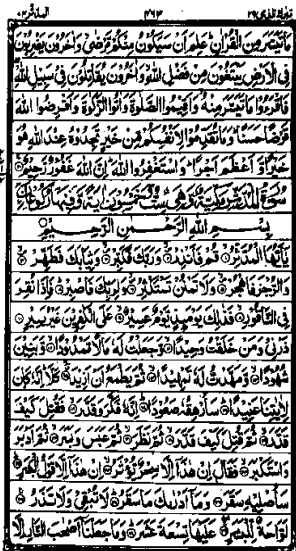 تبٰرك الذی ٢٩
المدثر ٧٤
مَا تَيَسَّرَ مِنَ الْقُرْاٰنِ عَلِمَ اَنْ سَيَكُوْنُ مِنْكُمْ مَّرْضٰى وَاٰخَرُوْنَ يَضْرِبُوْنَ
فِى الْاَرْضِ يَبْتَغُوْنَ مِنْ فَضْلِ اللّٰهِ وَاٰخَرُوْنَ يُقَاتِلُوْنَ فِىْ سَبِيْلِ اللّٰهِ
فَاقْرَءُوْا مَا تَيَسَّرَ مِنْهُ وَاَقِيْمُوا الصَّلٰوةَ وَاٰتُوا الزَّكٰوةَ وَاَقْرِضُوا اللّٰهَ
قَرْضًا حَسَنًا وَمَا تُقَدِّمُوْا لِاَنْفُسِكُمْ مِّنْ خَيْرٍ تَجِدُوْهُ عِنْدَ اللّٰهِ هُوَ
خَيْرًا وَّاَعْظَمَ اَجْرًا وَاسْتَغْفِرُوا اللّٰهَ اِنَّ اللّٰهَ غَفُوْرٌ رَّحِيْمٌ
سُوْرَةُ الْمُدَّثِّرِ مَكِّيَّةٌ وَّهِىَ سِتٌّ وَّخَمْسُوْنَ اٰيَةً وَّفِيْهَا رُكُوْعَانِ
بِسْمِ اللّٰهِ الرَّحْمٰنِ الرَّحِيْمِ
يٰٓاَيُّهَا الْمُدَّثِّرُ قُمْ فَاَنْذِرْ وَرَبَّكَ فَكَبِّرْ وَثِيَابَكَ فَطَهِّرْ
وَالرُّجْزَ فَاهْجُرْ وَلَا تَمْنُنْ تَسْتَكْثِرُ وَلِرَبِّكَ فَاصْبِرْ فَاِذَا نُقِرَ
فِى النَّاقُوْرِ فَذٰلِكَ يَوْمَئِذٍ يَّوْمٌ عَسِيْرٌ عَلَى الْكٰفِرِيْنَ غَيْرُ يَسِيْرٍ
ذَرْنِىْ وَمَنْ خَلَقْتُ وَحِيْدًا وَّجَعَلْتُ لَهٗ مَالًا مَّمْدُوْدًا وَّبَنِيْنَ
شُهُوْدًا وَّمَهَّدْتُّ لَهٗ تَمْهِيْدًا ثُمَّ يَطْمَعُ اَنْ اَزِيْدَ كَلَّا اِنَّهٗ كَانَ
لِاٰيٰتِنَا عَنِيْدًا سَاُرْهِقُهٗ صَعُوْدًا اِنَّهٗ فَكَّرَ وَقَدَّرَ فَقُتِلَ كَيْفَ
قَدَّرَ ثُمَّ قُتِلَ كَيْفَ قَدَّرَ ثُمَّ نَظَرَ ثُمَّ عَبَسَ وَبَسَرَ ثُمَّ اَدْبَرَ
وَاسْتَكْبَرَ فَقَالَ اِنْ هٰذَآ اِلَّا سِحْرٌ يُّؤْثَرُ اِنْ هٰذَآ اِلَّا قَوْلُ الْبَشَرِ
سَاُصْلِيْهِ سَقَرَ وَمَآ اَدْرٰىكَ مَا سَقَرُ لَا تُبْقِىْ وَلَا تَذَرُ
لَوَّاحَةٌ لِّلْبَشَرِ عَلَيْهَا تِسْعَةَ عَشَرَ وَمَا جَعَلْنَآ اَصْحٰبَ النَّارِ اِلَّا